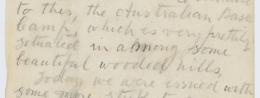 to this, the Australian Base
Camp, which is very prettily
situated in among some
beautiful wooded hills.
Today we were issued with
some more